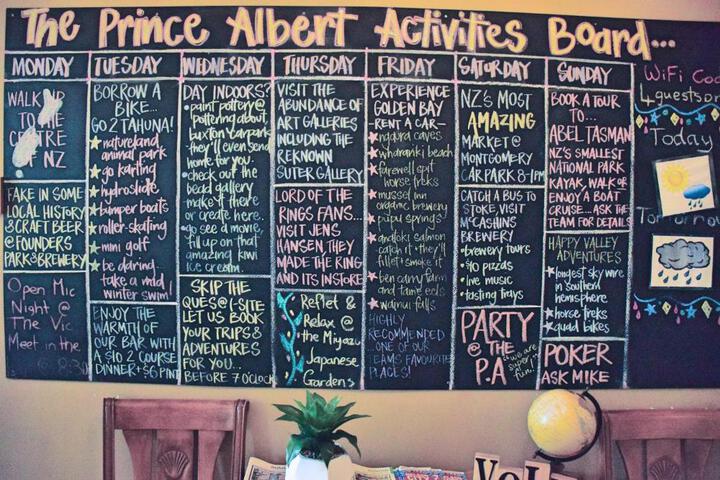 The Prince Albert Activities Board...
MONDAY
WALK
TO THE
CENTRE
OF NZ
TAKE IN SOME
LOCAL HISTORY
& CRAFT BEER
@ FOUNDERS
PARK & BREWERY
Open Mic
Night @
The Vic
Meet in the
TUESDAY
BORROW A
BIKE...
GO 2 TAHUNA!
natureland
animal park
go karting
hydroslide
bumper boats
roller-skating
mini golf
be daring,
take a mid
winter swim!
ENJOY THE
WARMTH OF
OUR BAR WITH
A $10 2 COURSE
DINNER + $6 PINT
WEDNESDAY
DAY INDOORS?
• paint pottery @
pottering about
buxton carpark
they'll even send
home for you.
• check out the
bead gallery
make it there
or create here.
• go see a movie,
fill up on that
amazing kiwi
ice cream.
SKIP THE
QUES @ I-SITE
LET US BOOK
YOUR TRIPS &
ADVENTURES
FOR YOU...
BEFORE 7 O'CLOCK
THURSDAY
VISIT THE
ABUNDANCE OF
ART GALLERIES
INCLUDING THE
REKNOWN
SUTER GALLERY
LORD OF THE
RINGS FANS...
VISIT JENS
HANSEN, THEY
MADE THE RING
AND ITS INSTORE
Reflet &
Relax @
the Miyazu
Japanese
Gardens
FRIDAY
EXPERIENCE
GOLDEN BAY
- RENT A CAR -
ngarua caves
wharariki beach
farewell spit
horse treks
mussel inn
organic brewery
pupu springs
anatoki salmon
catch it & they'll
fillet + smoke it
ben carry farm
and tame eels
wainui falls
HIGHLY
RECOMMENDED
ONE OF OUR
TEAMS FAVOURITE
PLACES!
SATURDAY
NZ'S MOST
AMAZING
MARKET @
MONTGOMERY
CAR PARK 8-1PM
CATCH A BUS TO
STOKE, VISIT
MCCASHINS
BREWERY
• brewery tours
• $10 pizzas
• live music
• tasting trays
PARTY
@ THE
P.A
"we are
super
fun!!
SUNDAY
BOOK A TOUR
TO...
ABEL TASMAN
NZ'S SMALLEST
NATIONAL PARK
KAYAK, WALK OR
ENJOY A BOAT
CRUISE... ASK THE
TEAM FOR DETAILS
HAPPY VALLEY
ADVENTURES
longest sky wire
in southern
hemisphere
horse treks
quad bikes
POKER
ASK MIKE
WiFi Co
4guestson
Today
Tomorrow
VOL